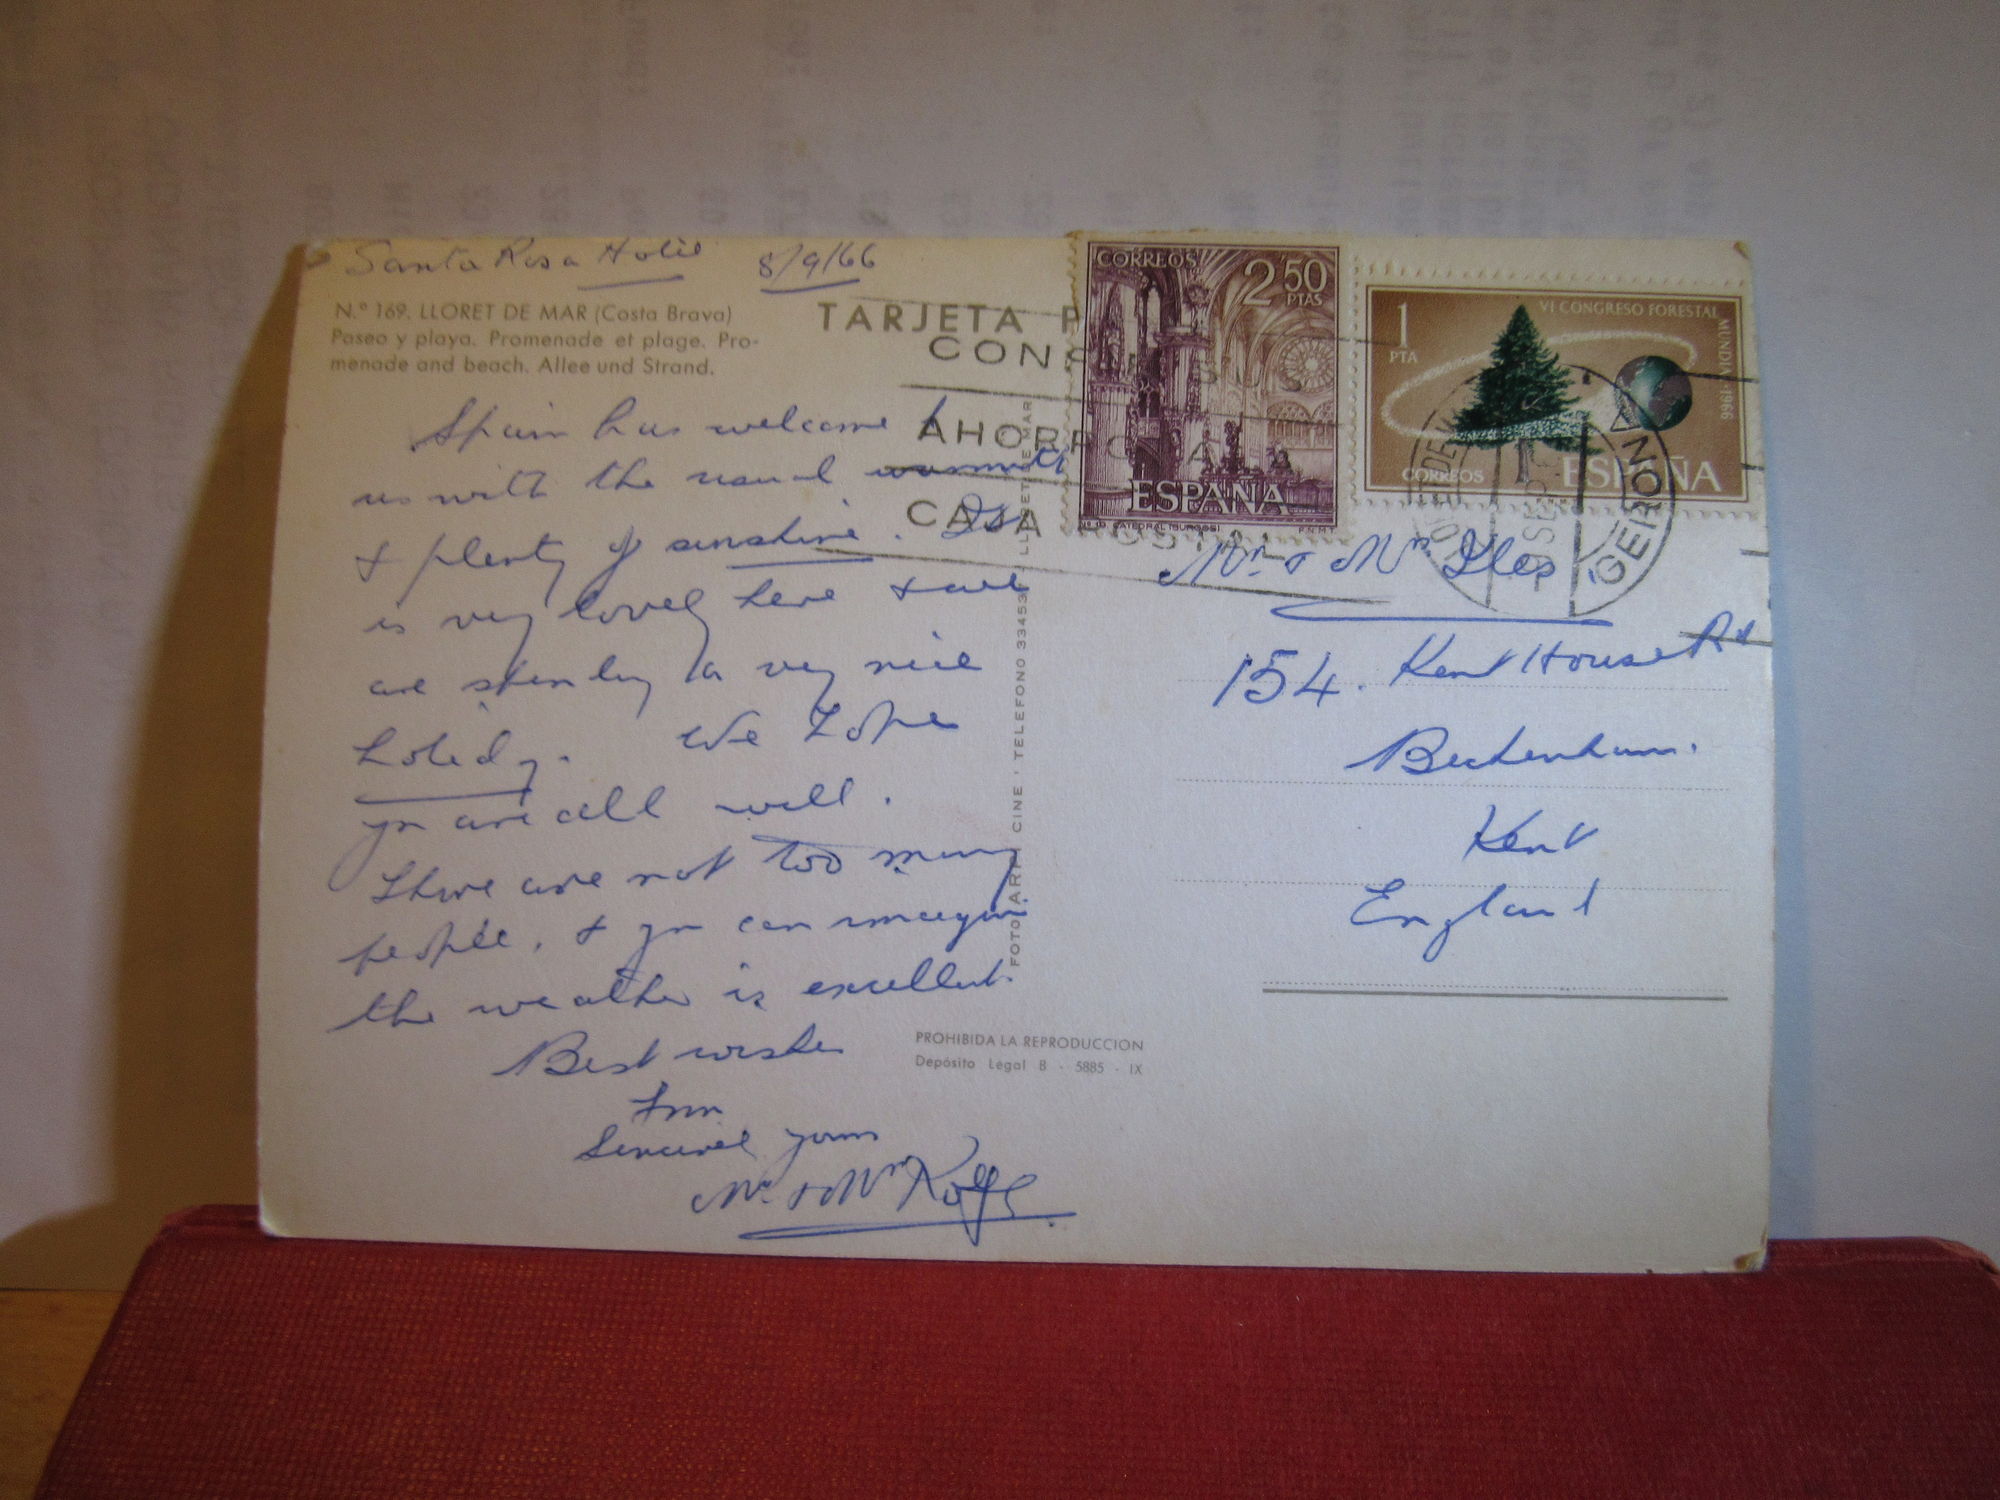 Santa Rosa Hotel 8/9/66
N.º 169. LLORET DE MAR (Costa Brava)
Paseo y playa. Promenade et plage. Pro-
menade and beach. Allee und Strand.
TARJETA P
CONS SUS
AHORROS LA
CAJA POSTAL
Spain has welcome
us with the usual warmth
& plenty of sunshine. It
is very lovely here & we
are spending a very nice
holidy. We hope
you are all well.
There are not too many
people, & you can imagine
the weather is excellent.
Best wishes
from
Sincerely yours
Mr. & Mrs Rolfe
FOTO ARF CINE TELEFONO 334537 LLORET DE MAR
PROHIBIDA LA REPRODUCCION
Depósito Legal B - 5885 - IX
CORREOS 2'50 PTAS
ESPAÑA
CATEDRAL (BURGOS) F.N.M.T.
1 PTA
VI CONGRESO FORESTAL MUNDIAL 1966
CORREOS ESPAÑA
GERONA
Mr. & Mrs. Iles
154. Kent House Rd
Beckenham.
Kent
England